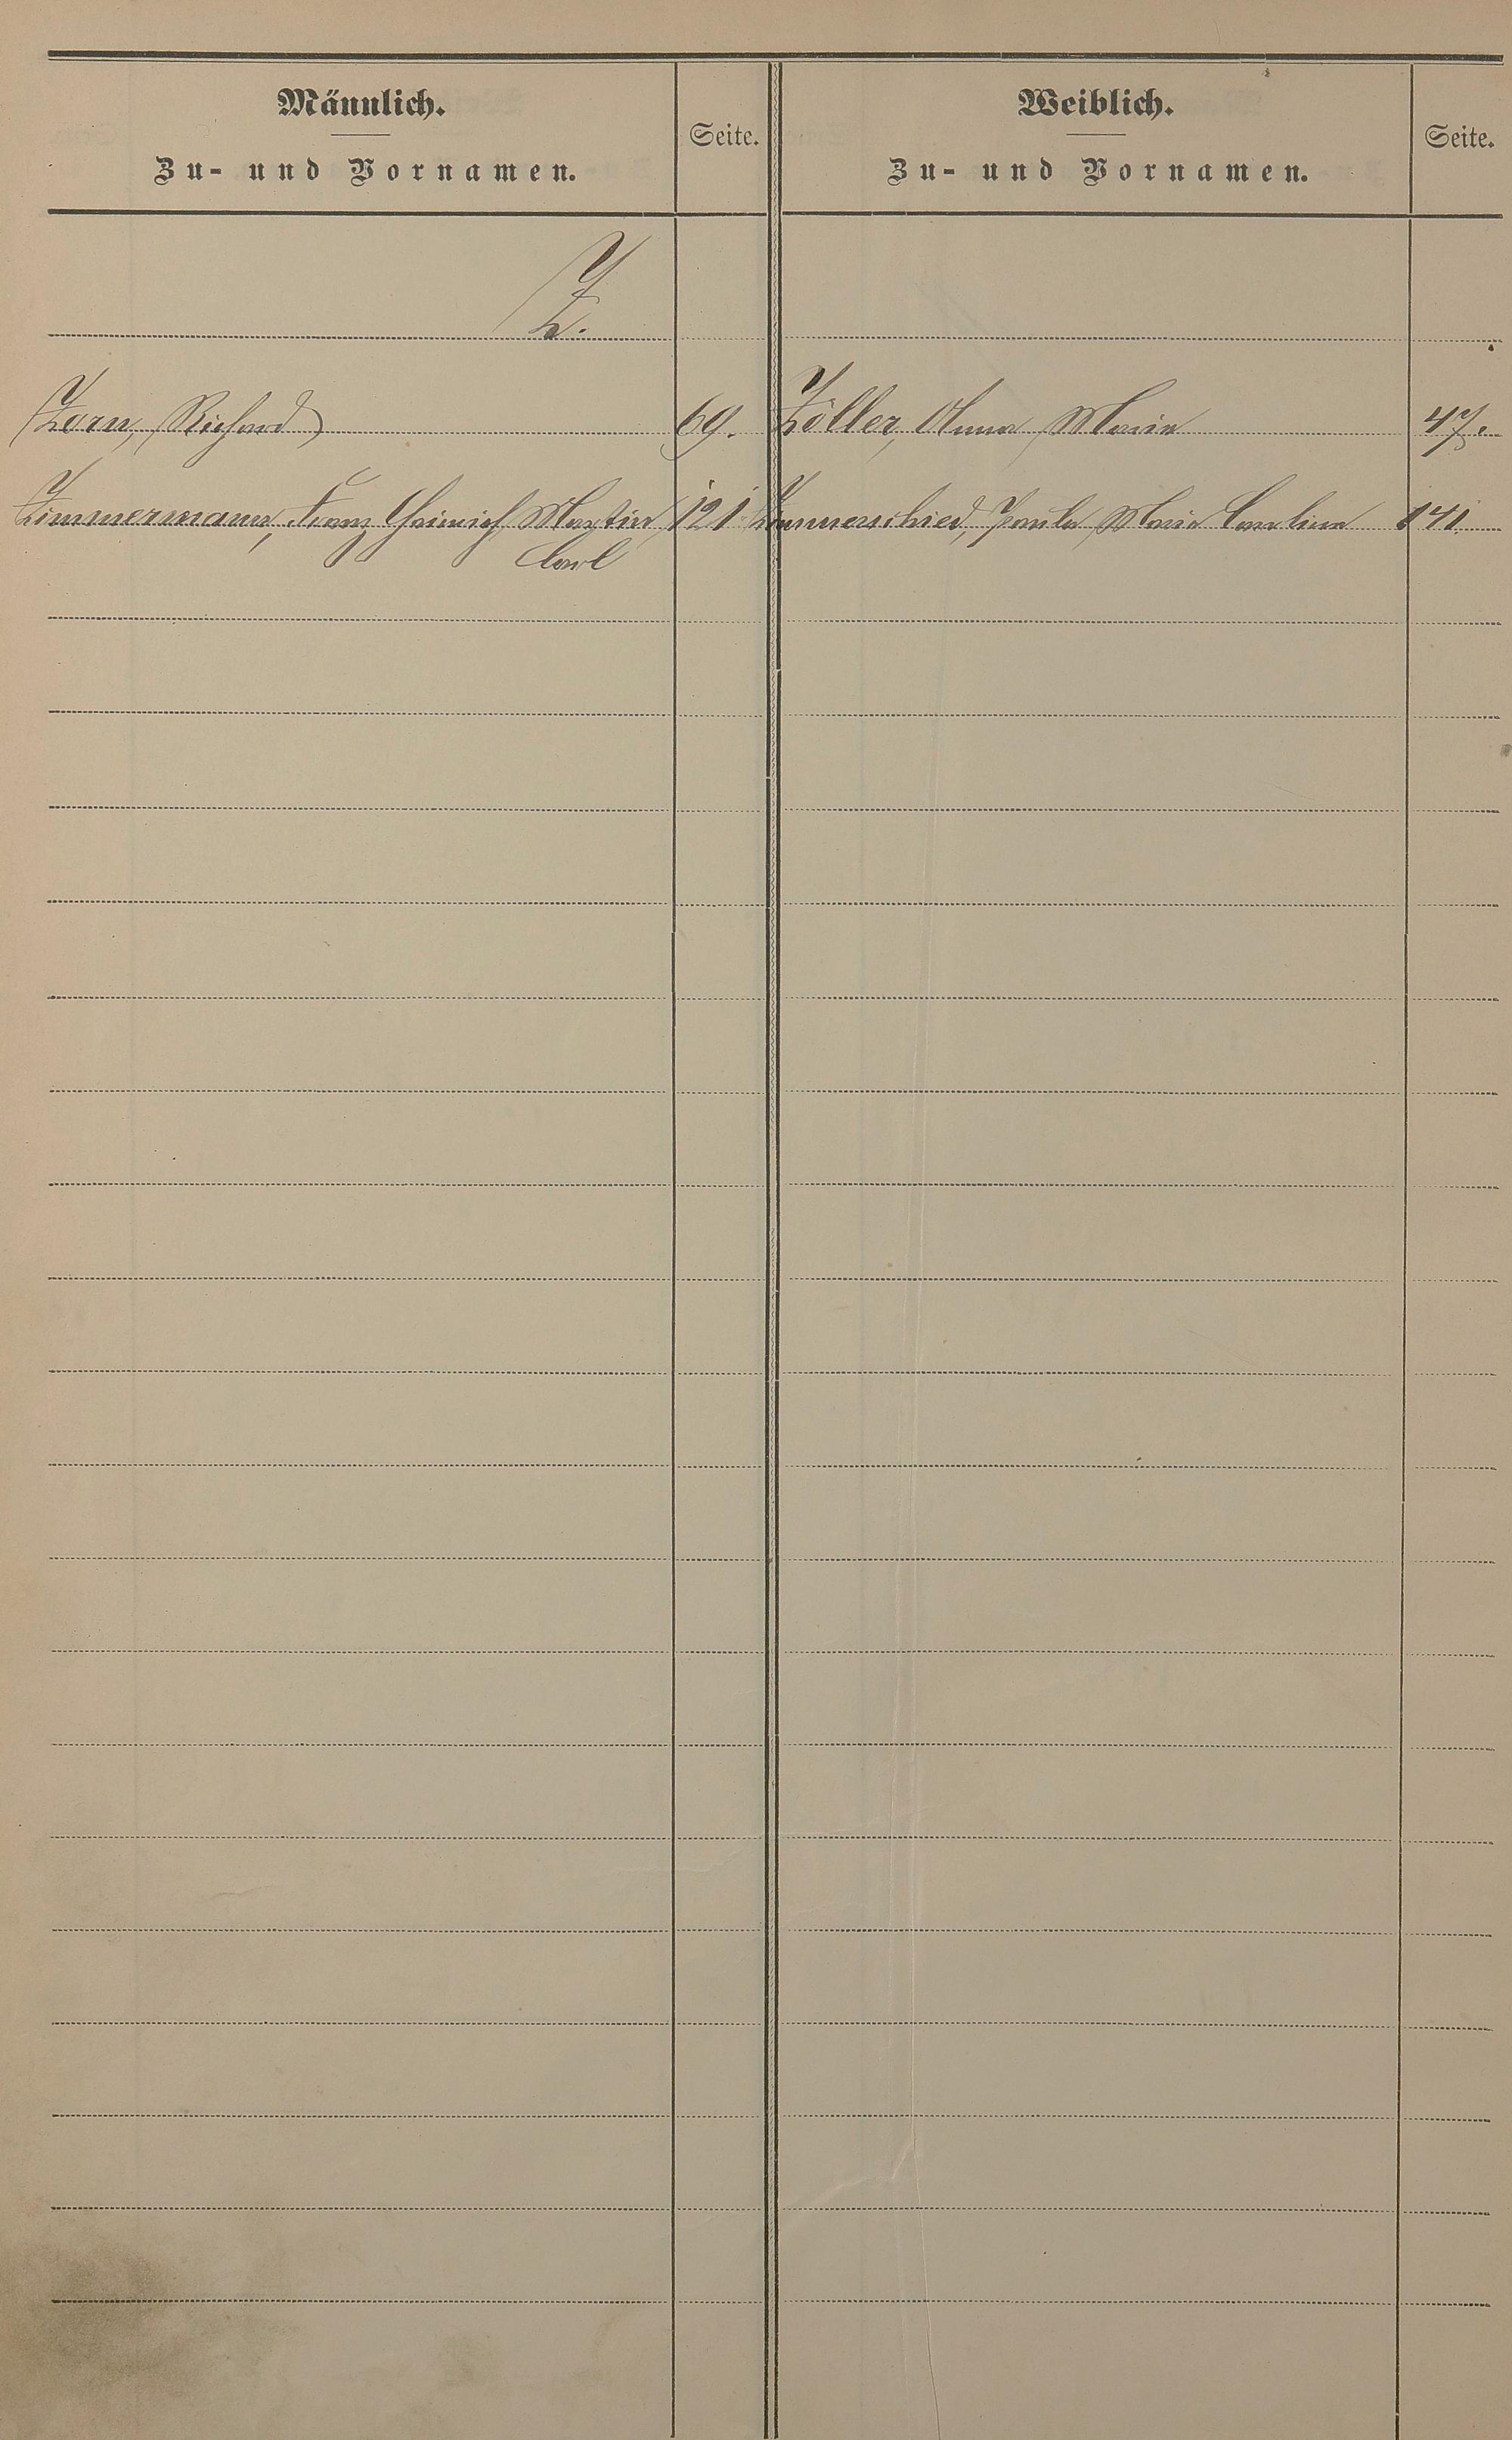 Männlich.
Zu- und Vornamen.
Seite.
Weiblich.
Zu- und Vornamen.
Seite.
Z.
Zorn, Richard 69.
Zöller, Anna Maria 47.
Zimmermann, Franz Heinrich Martin 121
Carl
Zimmerschied, Paula Maria Carolina 141.